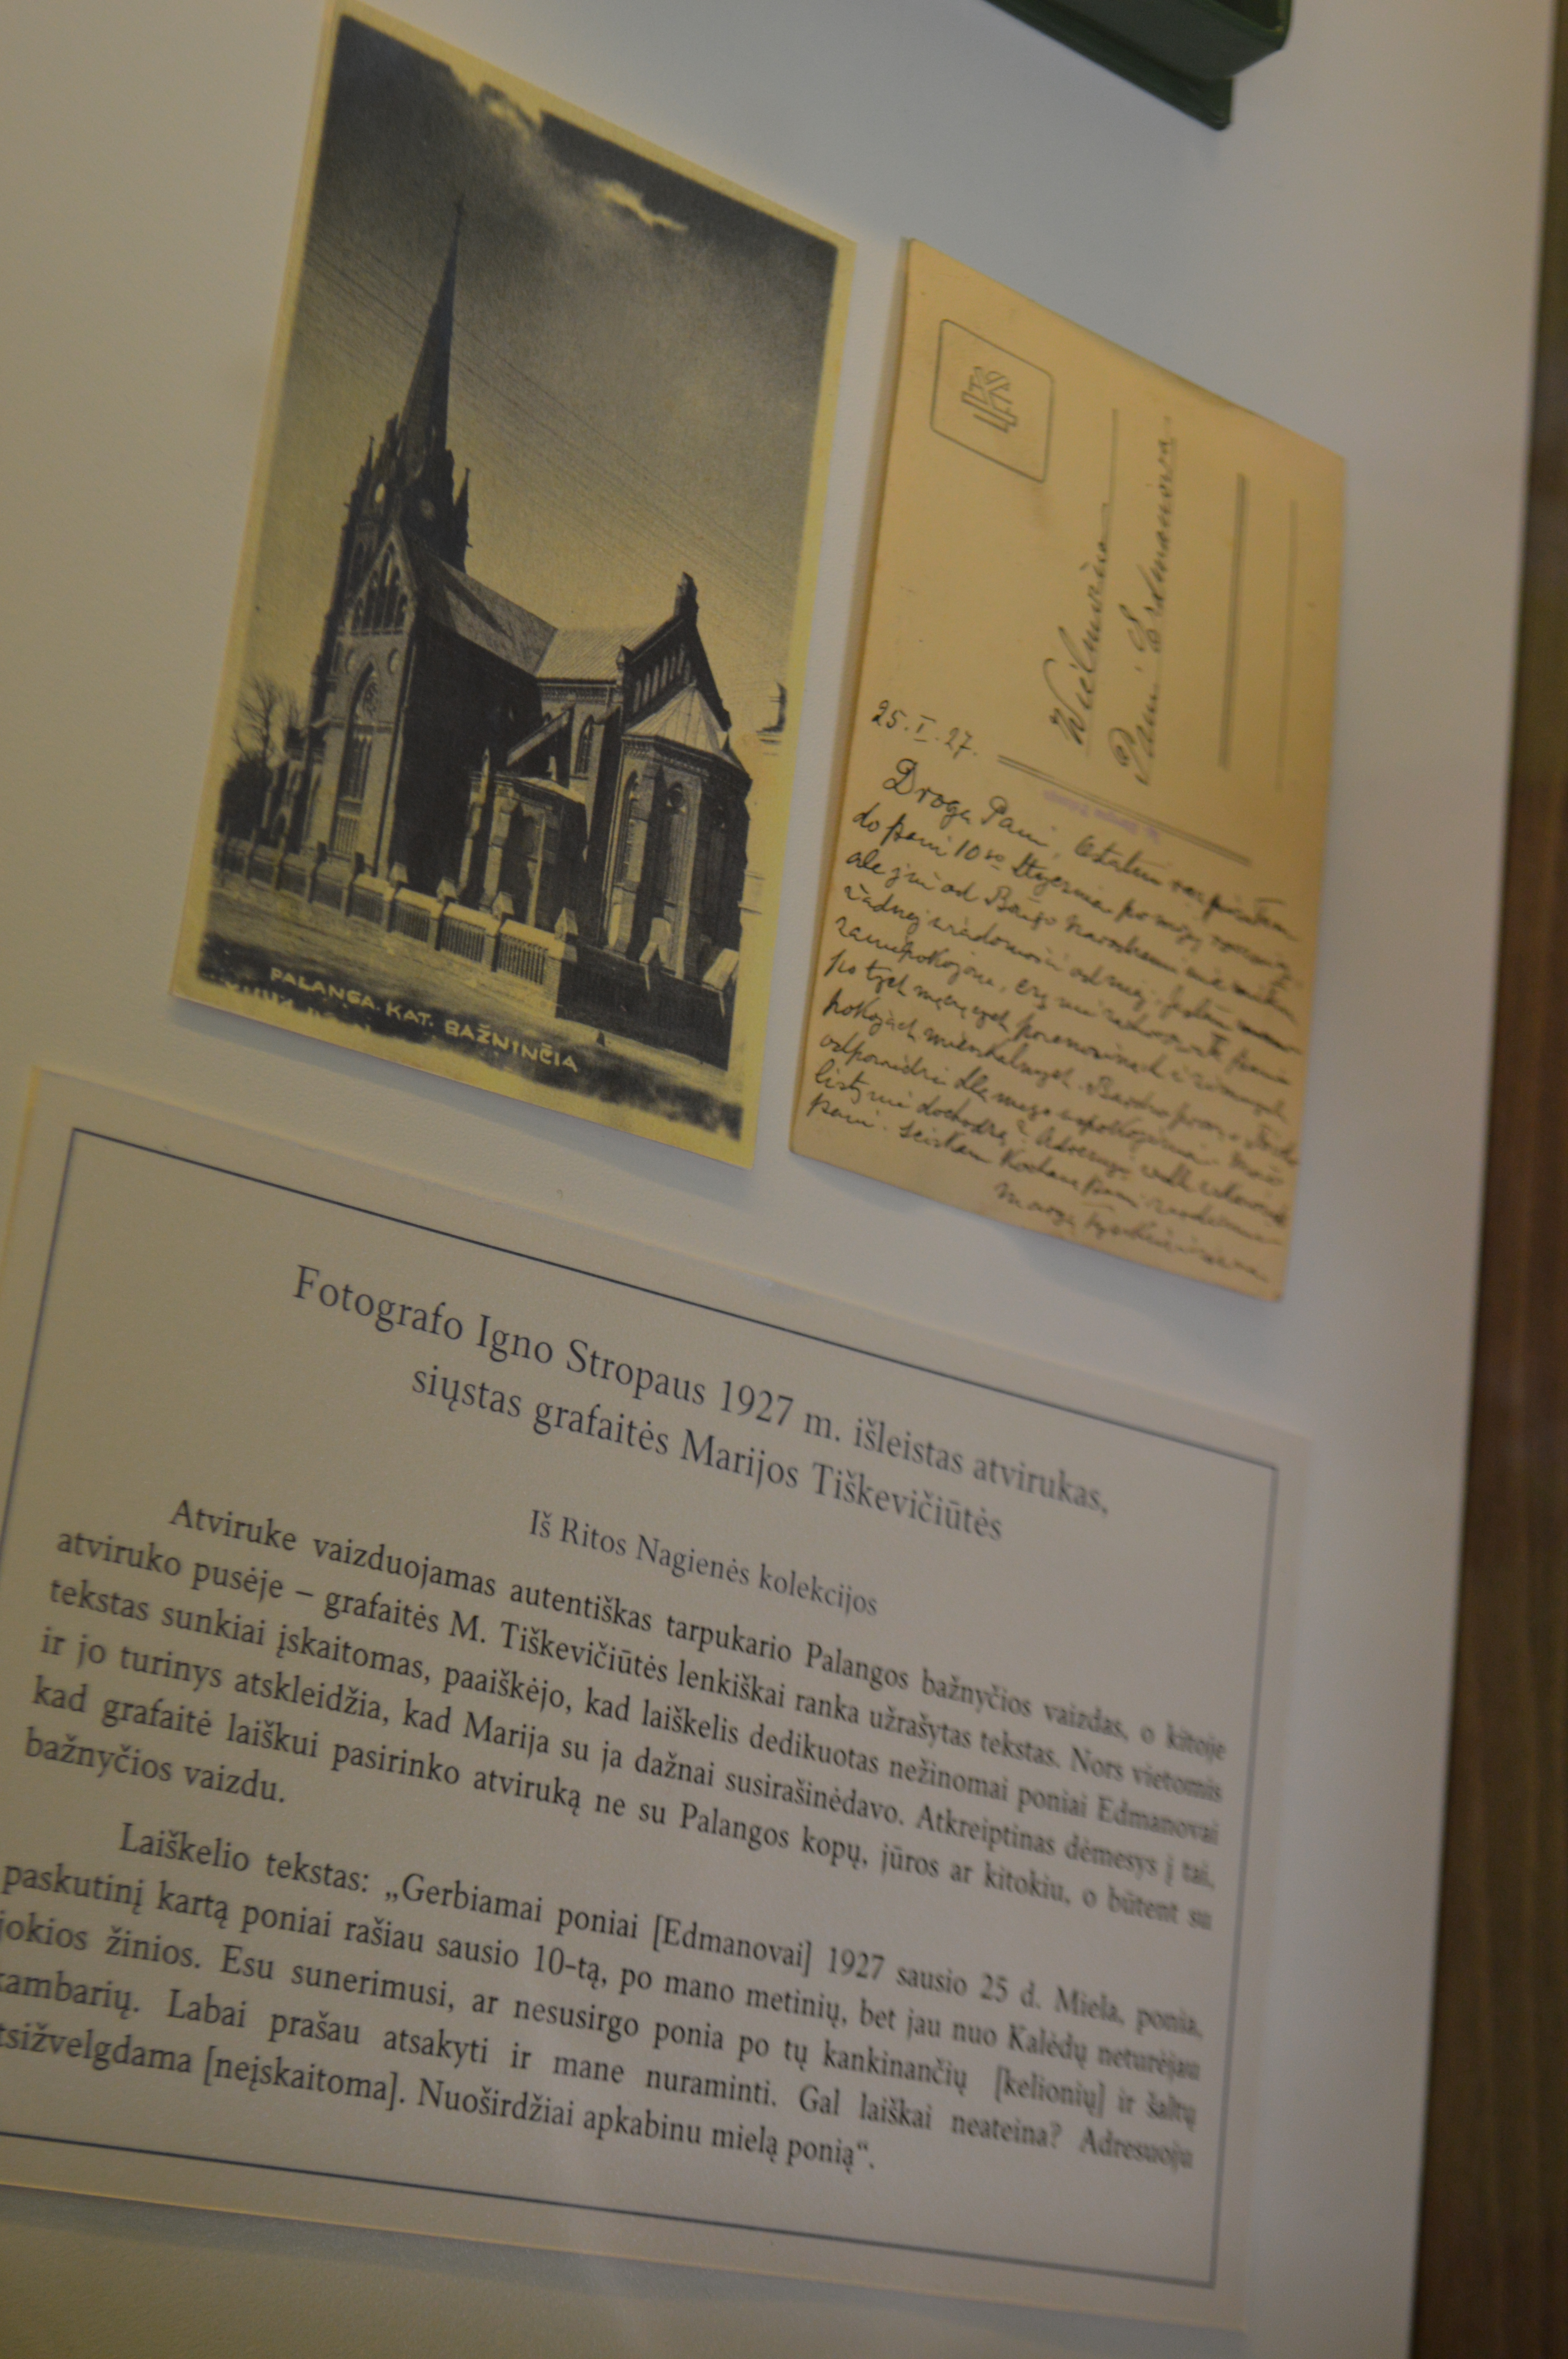 PALANGA. KAT. BAŽNINČIA
Wielmożna
Pani Edmanowa
25.I.27.
Droga Pani, Ostatni raz pisałam
do pani 10go Stycznia po mojej
ale już od Bożego Narodzenia nie miałam
żadnej wiadomości od niej. Jestem
zaniepokojona, czy nie zachorowała pani
po tych męczących i zimnych
pokojach mieszkalnych. Bardzo proszę
odpowiedzi dla mego uspokojenia. Może
listy nie dochodzą? Adresuję
pani. Ściskam Kochaną Panią serdecznie
Fotografo Igno Stropaus 1927 m. išleistas atvirukas,
siųstas grafaitės Marijos Tiškevičiūtės
Iš Ritos Nagienės kolekcijos
Atviruke vaizduojamas autentiškas tarpukario Palangos bažnyčios vaizdas, o kitoje
atviruko pusėje – grafaitės M. Tiškevičiūtės lenkiškai ranka užrašytas tekstas. Nors vietomis
tekstas sunkiai įskaitomas, paaiškėjo, kad laiškelis dedikuotas nežinomai poniai Edmanovai
ir jo turinys atskleidžia, kad Marija su ja dažnai susirašinėdavo. Atkreiptinas dėmesys į tai,
kad grafaitė laiškui pasirinko atviruką ne su Palangos kopų, jūros ar kitokiu, o būtent su
bažnyčios vaizdu.
Laiškelio tekstas: „Gerbiamai poniai [Edmanovai] 1927 sausio 25 d. Miela, ponia,
paskutinį kartą poniai rašiau sausio 10-tą, po mano metinių, bet jau nuo Kalėdų neturėjau
jokios žinios. Esu sunerimusi, ar nesusirgo ponia po tų kankinančių [kelionių] ir šaltų
kambarių. Labai prašau atsakyti ir mane nuraminti. Gal laiškai neateina? Adresuoju
tsižvelgdama [neįskaitoma]. Nuoširdžiai apkabinu mielą ponią“.